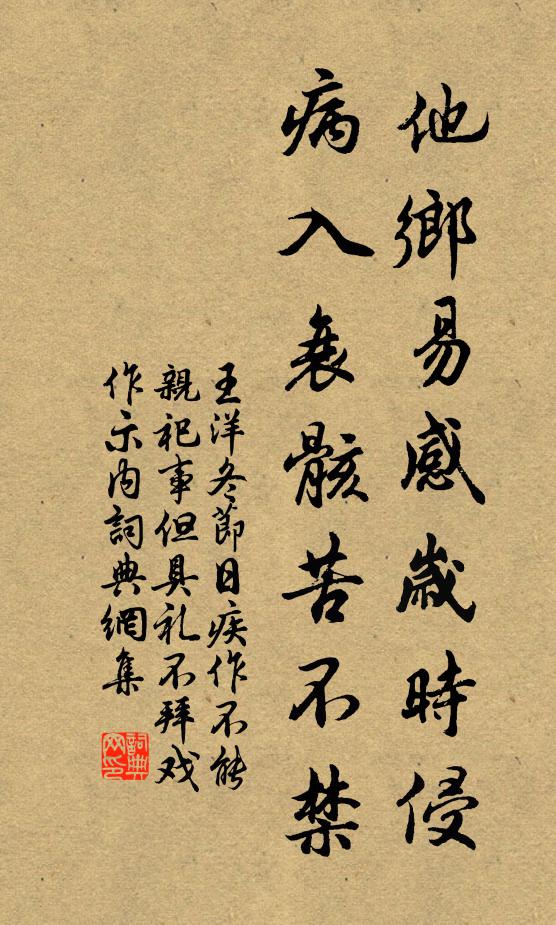 他鄉易感歲時侵
病入衰骸苦不禁
王洋冬節日疾作不能
親祀事但具礼不拜戏
作示内詞典網集
詞典网印